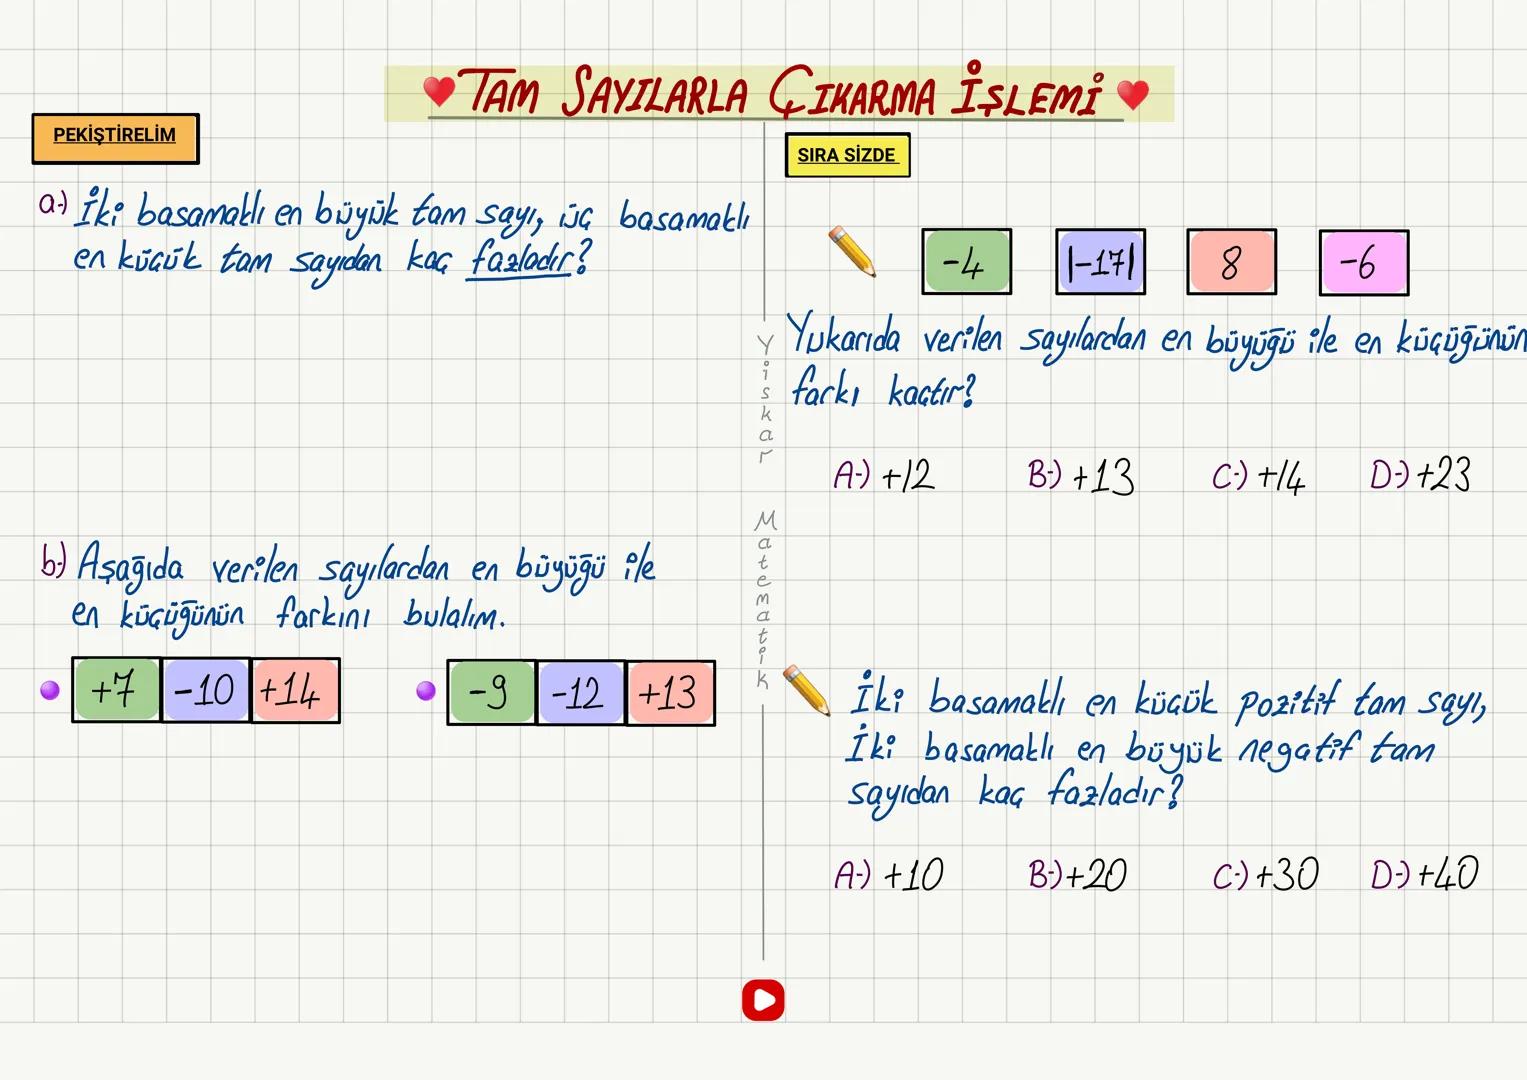 TAM SAYILARLA ÇIKARMA İŞLEMİ
PEKİŞTİRELİM
a-) İki basamaklı en büyük tam sayı, üç basamaklı
en küçük tam sayıdan kaç fazladır?
b-) Aşağıda verilen sayılardan en büyüğü ile
en küçüğünün farkını bulalım.
+7 -10 +14
-9 -12 +13
Yiskar Matematik
SIRA SİZDE
-4 |-17| 8 -6
Yukarıda verilen sayılardan en büyüğü ile en küçüğünün
farkı kaçtır?
A-) +12 B-) +13 C-) +14 D-) +23
İki basamaklı en küçük pozitif tam sayı,
İki basamaklı en büyük negatif tam
sayıdan kaç fazladır?
A-) +10 B-) +20 C-) +30 D-) +40